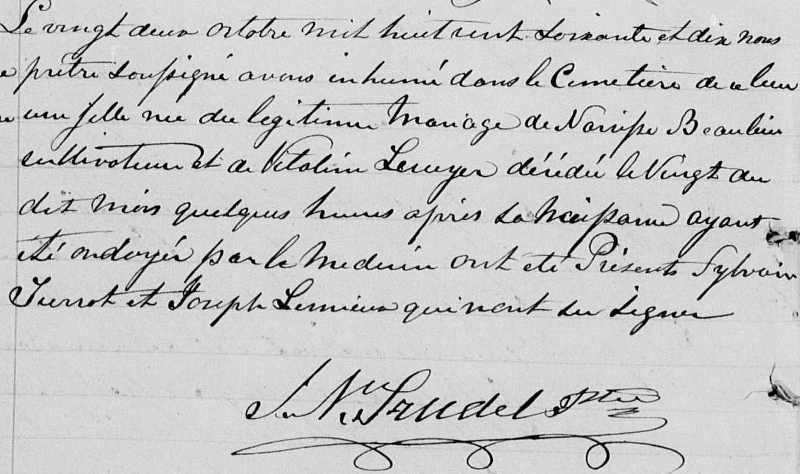 Le vingt deux octobre mil huit cent soixante et dix nous
prêtre soussigné avons inhumé dans le Cimetière de ce lieu
une fille née du légitime Mariage de Narcisse Beaulieu
cultivateur et de Vitaline Lecuyer décédée le Vingt du
dit mois quelques heures après sa Naissance ayant
été ondoyée par le Medecin ont été Présents Sylvain
et Joseph Lemieux qui n'ont su signer
Trudel Ptre